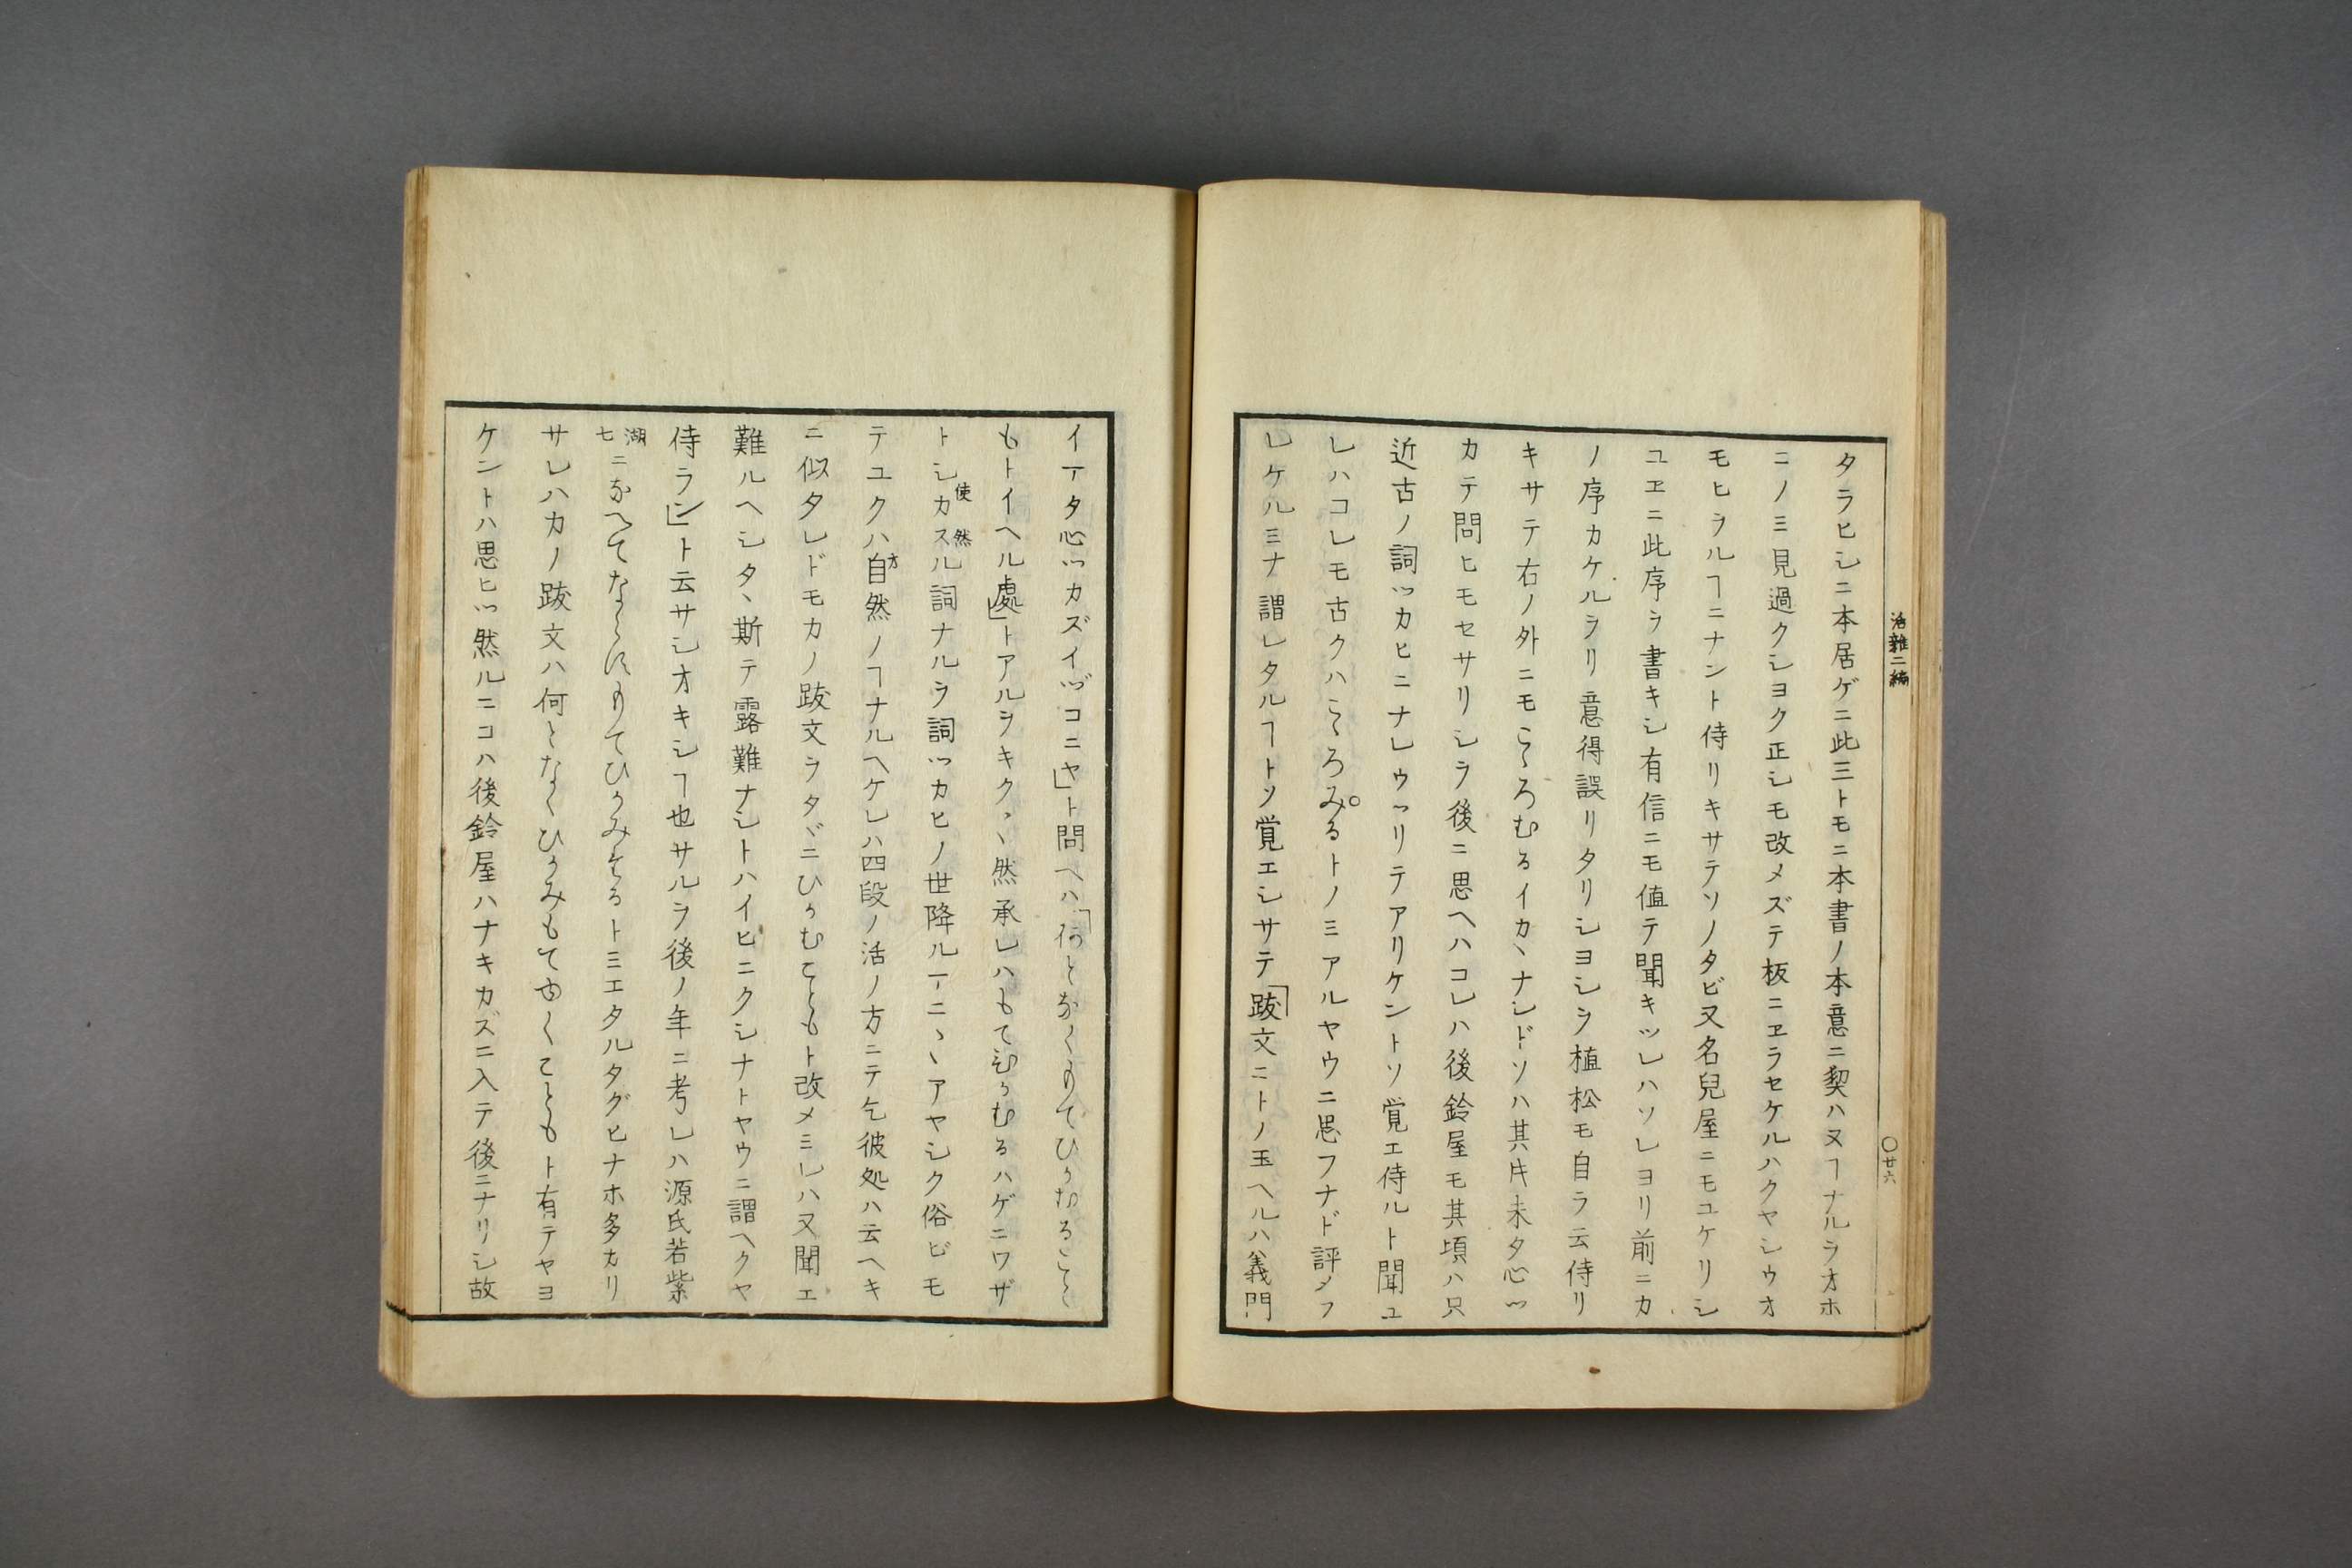 活雜二編
〇廿六
タラヒシニ本居ゲニ此三トモニ本書ノ本意ニ契ハヌヿナルヲオホ
ニノミ見過クシヨク正シモ改メズテ板ニヱラセケルハクヤシウオ
モヒラルヿニナント侍リキサテソノタビ又名兒屋ニモユケリシ
ユヱニ此序ヲ書キシ有信ニモ値テ聞キツレハソレヨリ前ニカ
ノ序カケルヲリ意得誤リタリシヨシヲ植松モ自ラ云侍リ
キサテ右ノ外ニモこゝろむるイカヽナレドソハ其片未タ心ツ
カテ問ヒモセサリシヲ後ニ思ヘハコレハ後鈴屋モ其頃ハ只
近古ノ詞ツカヒニナレウツリテアリケントソ覚エ侍ルト聞ユ
レハコレモ古クハこゝろみるトノミアルヤウニ思フナド評メフ
レケルミナ謂レタルヿトソ覚エシサテ「跋文ニトノ玉ヘルハ義門
イマタ心ツカズイヅコニヤ」ト問ヘハ「何となくもてひかむること
もトイヘル處」トアルヲキクヽ然承レハもてひかむるハゲニワザ
トシカスル詞ナルヲ詞ツカヒノ世降ルマニヽアヤシク俗ビモ
使然
テユクハ自然ノヿナルヘケレハ四段ノ活ノ方ニテ乞彼処ハ云ヘキ
方
ニ似タレドモカノ跋文ヲタヾニひかむこともト改メミレハ又聞エ
難ルヘシタヽ斯テ露難ナシトハイヒニクシナトヤウニ謂ヘクヤ
侍ラン」ト云サシオキシヿ也サルヲ後ノ年ニ考レハ源氏若紫
湖七ニなへてならすもてひかみそるトミエタルタグヒナホ多カリ
サレハカノ跋文ハ何となくひかみもてゆくこともト有テヤヨ
ケントハ思ヒツ然ルニコハ後鈴屋ハナキカズニ入テ後ニナリシ故